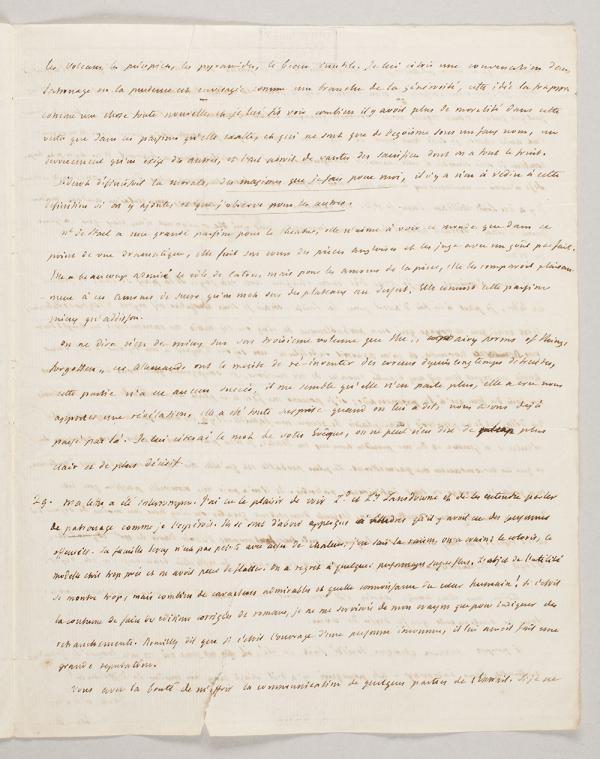 les volcans, les précipices, les pyramides, le beau inutile. Je lui citois une conversation dans
Patronage où la prudence est envisagée comme une branche de la générosité, cette idée la frappa
comme une chose toute nouvelle et je lui fis voir combien il y avoit plus de moralité dans cette
vertu que dans ces passions qu'elle exalte, et qui ne sont que de l'égoisme sous un faux nom, un
qu'on exige des autres, et l'art de vanter des sacrifices dont on a tout le fruit.
Diderot définissoit la morale, des maximes que je fais pour moi, il n'y a rien à redire à cette
définition si on y ajoute, et que j'observe pour les autres.
Me de Stael a une grande passion pour le théâtre, elle n'aime à voir ce monde que dans ce
point de vue dramatique, elle fait son cours des pièces angloises et les juge avec un goût parfait.
Elle a beaucoup admiré le rôle de Caton, mais pour les amours de la pièce, elle les comparoit plaisam-
ment à ces amours de sucre qu'on met sur des plateaux au dessert. Elle connoit cette passion
mieux qu'adisson.
On ne dira rien de mieux sur son troisième volume que the airy forms of things
forgotten, ces allemands ont le mérite de ré-inventer des erreurs depuis longtems détruites,
cette partie n'a eu aucun succès, il me semble qu'elle n'en parle plus, elle a cru nous
apporter une révélation, elle a été toute surprise quand on lui a dit, nous avons déjà
passé par là. Je lui citerai le mot de votre Evêque, on ne peut rien dire de plus
clair et de plus décisif.
29. Ma lettre a été interrompue. J'ai eu le plaisir de voir Ld et Ly Lansdowne et de les entendre parler
de patronage comme je l'espérois. Ils se sont d'abord apperçus qu'il y avoit eu des personnes
offensées. La famille n'est pas peinte avec assez de chaleur, j'en sais la raison, on a craint le coloris, le
modèle étoit trop près et on avoit peur de flatter. On a regret à quelques personnages superflus. Le objet de l'utilité
se montre trop, mais combien de caractères admirables et quelle connoissance du coeur humain! Si c'étoit
la coutume de faire des éditions corrigées de romans, je ne me servirois de mon crayon que pour indiquer des
retranchements. Romilly dit que si c'étoit l'ouvrage d'une personne inconnue, il lui auroit fait une
grande réputation.
Vous avez la bonté de m'offrir la communication de quelques parties de Si je ne